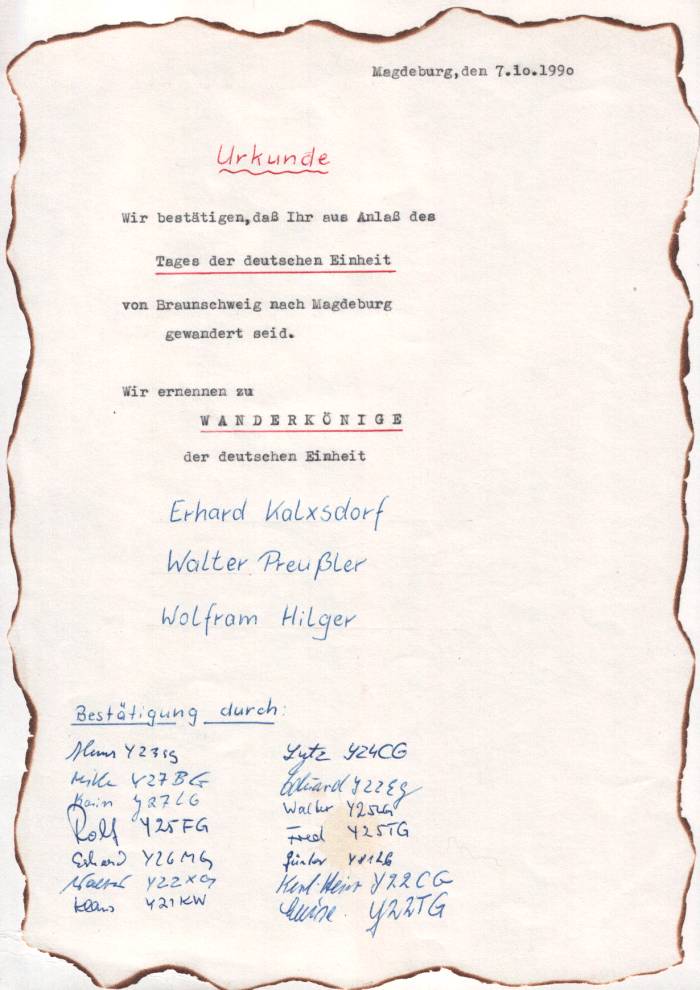 Magdeburg,den 7.10.1990
Urkunde
Wir bestätigen,daß Ihr aus Anlaß des
Tages der deutschen Einheit
von Braunschweig nach Magdeburg
gewandert seid.
Wir ernennen zu
W A N D E R K Ö N I G E
der deutschen Einheit
Erhard Kalxsdorf
Walter Preußler
Wolfram Hilger
Bestätigung durch:
Y23
Lutz Y24CG
Mike Y27BG
Eduard Y22EG
Karin Y27LG
Walter
Rolf Y25FG
Fred Y25TG
Erhard Y26MG
Günter
Walter Y22XG
Karl-Heinz Y22CG
Klaus Y21KW
Y22TG